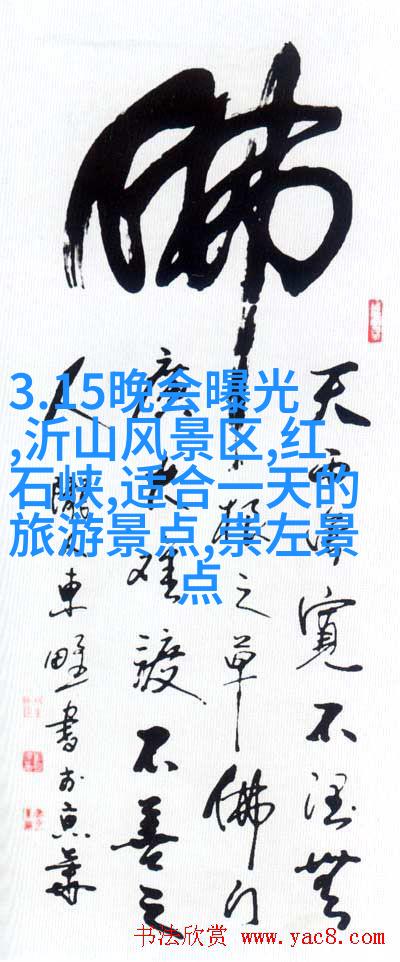 佛
天雨雖寬不潤無
根之草佛门
廣大難渡不善之
人
東野書於京華
3.15晚会曝光
,沂山风景区,红
石峡,适合一天的
旅游景点,崇左景
点
书法欣赏 www.yac8.com